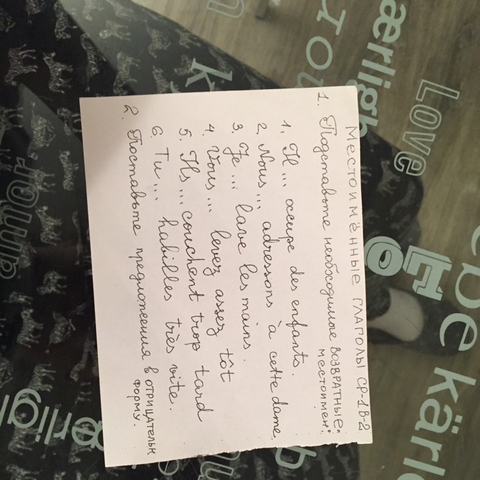 Местоимённые глаголы СР-1 В-2
1. Подставьте необходимые возвратные местоимен.:
1. Il ... occupe des enfants
2. Nous ... adressons à cette dame.
3. Je ... lave les mains.
4. Vous ... levez assez tôt
5. Ils ... couchent trop tard
6. Tu ... habilles très vite.
2. Поставьте предложения в отрицательн форму.
Love
ærligh
kærl